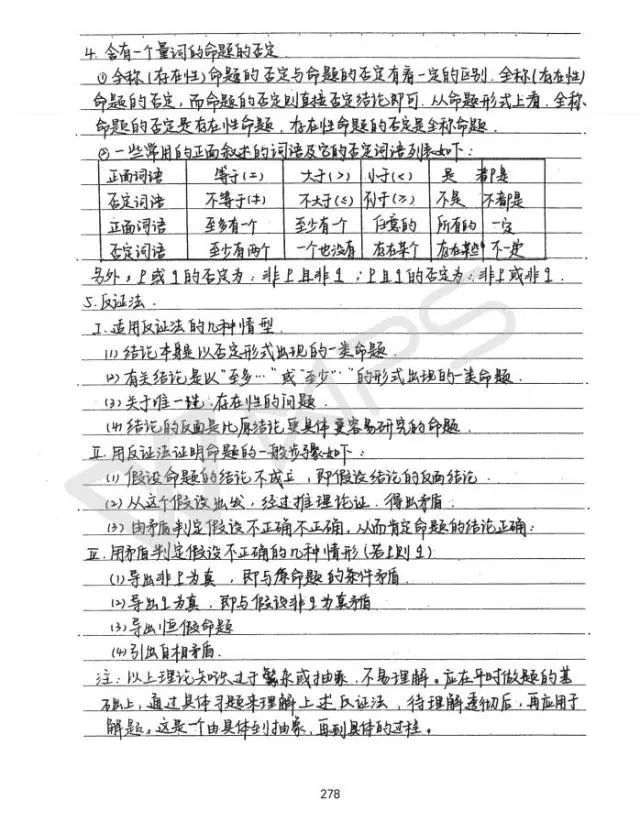 4. 含有一个量词的命题的否定
① 全称(存在性)命题的否定与命题的否定有着一定的区别. 全称(存在性)
命题的否定, 而命题的否定则直接否定结论即可. 从命题形式上看, 全称
命题的否定是存在性命题, 存在性命题的否定是全称命题.
② 一些常用的正面叙述的词语及它的否定词语列表如下:
正面词语 等于(=) 大于(>) 小于(<) 是 都是
否定词语 不等于(≠) 不大于(≤) 不小于(≥) 不是 不都是
正面词语 至多有一个 至少有一个 任意的 所有的 一定
否定词语 至少有两个 一个也没有 存在某个 存在某些 不一定
另外, p或q的否定为: 非p且非q ; p且q的否定为: 非p或非q.
5. 反证法.
Ⅰ. 适用反证法的几种情型.
(1) 结论本身是以否定形式出现的一类命题.
(2) 有关结论是以"至多…"或"至少…"的形式出现的一类命题.
(3) 关于唯一性, 存在性的问题.
(4) 结论的反面是比原结论更具体更容易研究的命题.
Ⅱ. 用反证法证明命题的一般步骤如下:
(1) 假设命题的结论不成立, 即假设结论的反面结论.
(2) 从这个假设出发, 经过推理论证. 得出矛盾.
(3) 由矛盾判定假设不正确不正确, 从而肯定命题的结论正确.
Ⅲ. 用矛盾判定假设不正确的几种情形(若p则q)
(1) 导出非p为真, 即与原命题的条件矛盾.
(2) 导出q为真, 即与假设非q为真矛盾
(3) 导出恒假命题
(4) 引出自相矛盾.
注: 以上理论知识过于繁杂或抽象, 不易理解。应在平时做题的基
础上, 通过具体习题来理解上述反证法, 待理解透彻后, 再应用于
解题。这是一个由具体到抽象, 再到具体的过程。
278